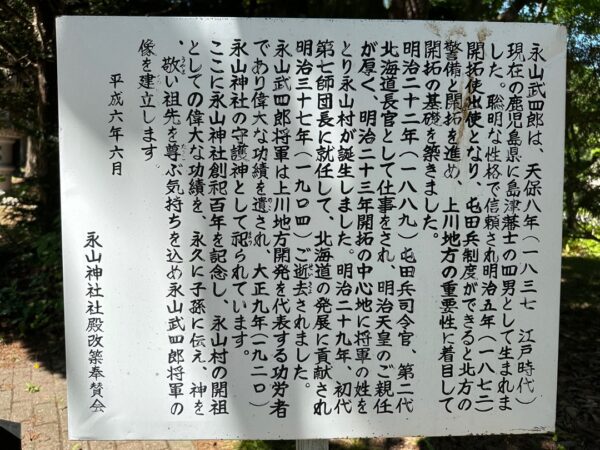 永山武四郎は、天保八年（一八三七　江戸時代）
現在の鹿児島県に島津藩士の四男として生まれま
した。聡明な性格で信頼され明治五年（一八七二）
開拓使出使となり、屯田兵制度ができると北方の
警備と開拓を進め、上川地方の重要性に着目して
開拓の基礎を築きました。
明治二十二年（一八八九）屯田兵司令官、第二代
北海道長官として仕事をされ、明治天皇のご親任
が厚く、明治二十三年開拓の中心地に将軍の姓を
とり永山村が誕生しました。明治二十九年、初代
第七師団長に就任して、北海道の発展に貢献され
明治三十七年（一九〇四）ご逝去されました。
永山武四郎将軍は上川地方開発を代表する功労者
であり偉大な功績を遺され、大正九年（一九二〇）
永山神社の守護神として祀られています。
ここに永山神社創祀百年を記念し、永山村の開祖
としての偉大な功績を、永久に子孫に伝え、神を
、敬い祖先を尊ぶ気持ちを込め永山武四郎将軍の
像を建立します
平成六年六月
永山神社社殿改築奉賛会